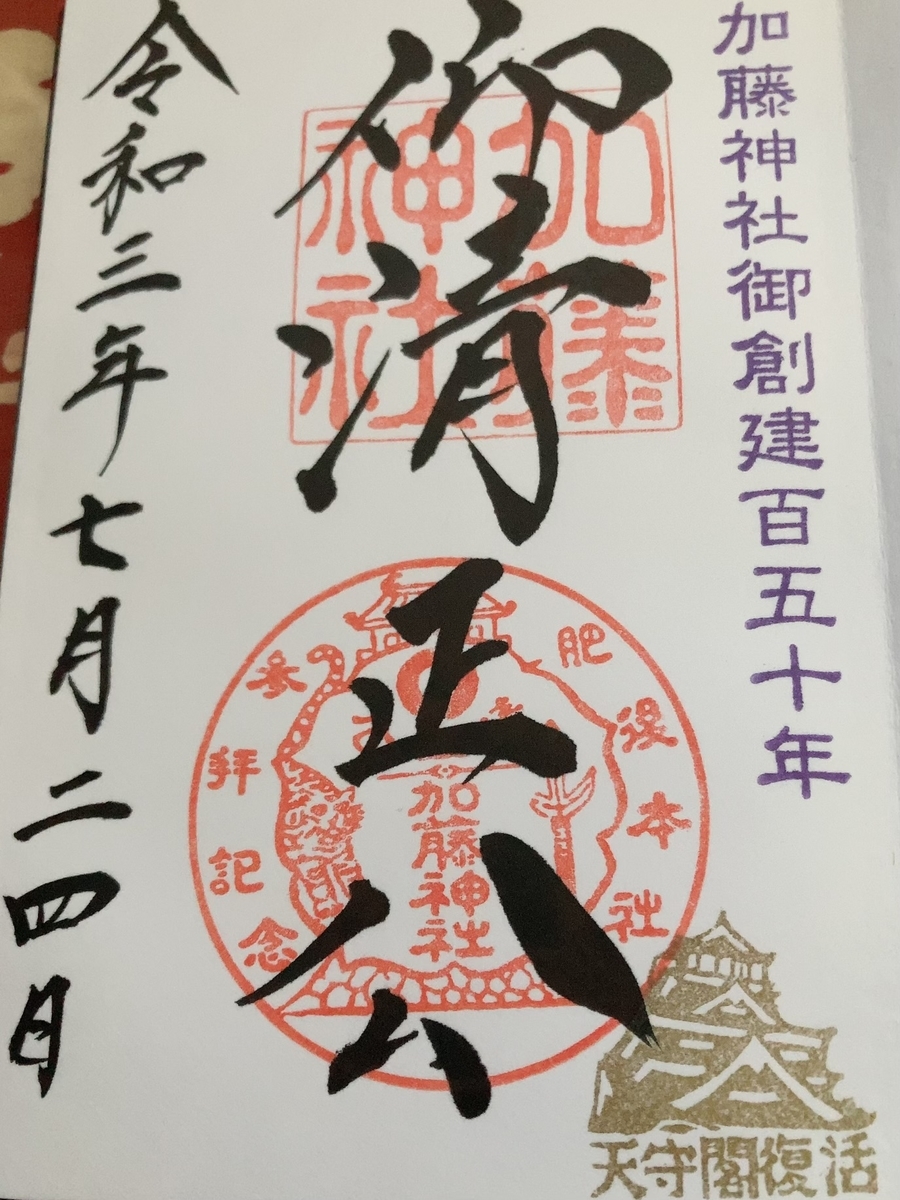 加藤神社御創建百五十年
仰清正公
加藤
神社
肥後本社
加藤神社
参拝記念
天守閣復活
令和三年七月二四日